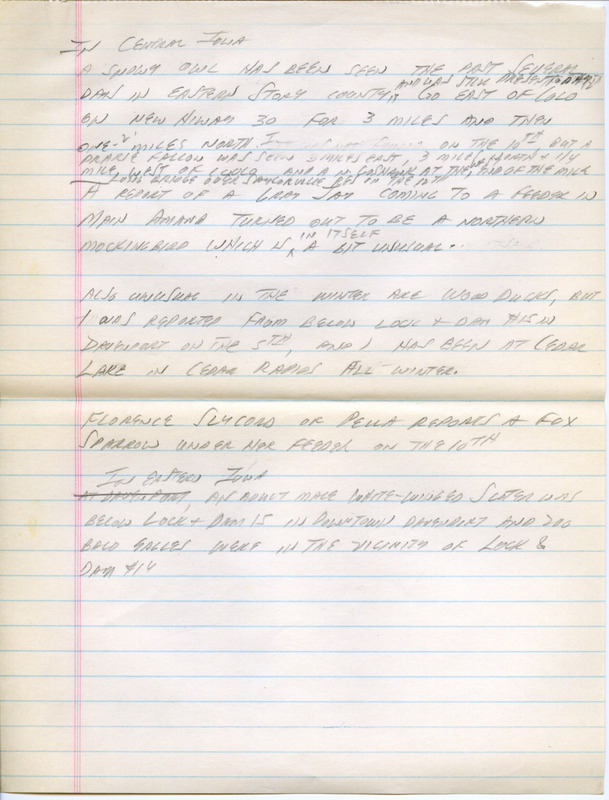 IN CENTRAL IOWA
A SNOWY OWL HAS BEEN SEEN THE PAST SEVERAL
AND WAS STILL PRESENT TODAY
DAYS IN EASTERN STORY COUNTY, GO EAST OF COLO
ON NEW HIWAY 30 FOR 3 MILES AND THEN
ONE-2 MILES NORTH, ON THE 10TH, BUT A
PRARIE FALCON WAS SEEN 3 MILES EAST, 3 MILES NORTH & 1/4
MILE WEST OF COLO AND A N. GOSHAWK AT THE END OF THE MILE
OVER SAYLORVILLE RES ON THE 10TH
A REPORT OF A GRAY JAY COMING TO A FEEDER IN
MAIN AMANA TURNED OUT TO BE A NORTHERN
IN ITSELF
MOCKINGBIRD WHICH IS A BIT UNUSUAL.
ALSO UNUSUAL IN THE WINTER ARE WOOD DUCKS, BUT
1 WAS REPORTED FROM BELOW LOCK & DAM #15 IN
DAVENPORT ON THE 5TH, AND 1 HAS BEEN AT CEDAR
LAKE IN CEDAR RAPIDS ALL WINTER.
FLORENCE SLYCORD OF PELLA REPORTS A FOX
SPARROW UNDER HER FEEDER ON THE 10TH
IN EASTERN IOWA
AT DAVENPORT, AN ADULT MALE WHITE-WINGED SCOTER WAS
BELOW LOCK & DAM 15 IN DOWNTOWN DAVENPORT AND 200
BALD EAGLES WERE IN THE VICINITY OF LOCK &
DAM #14